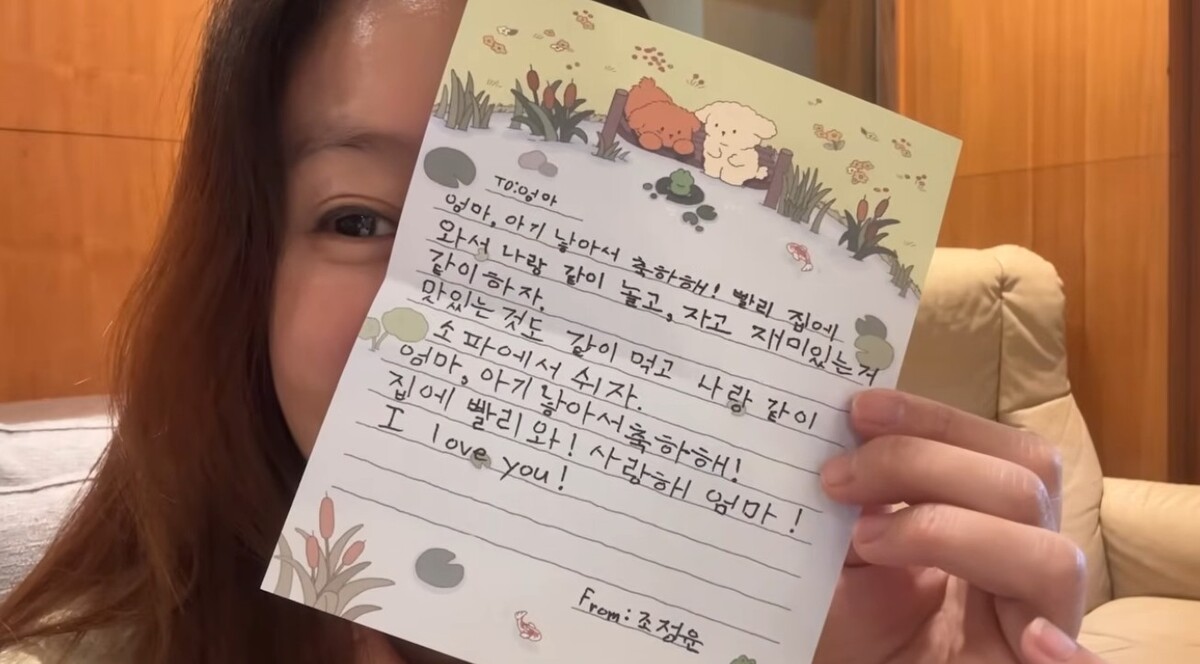 TO:엄마
엄마, 아기 낳아서 축하해! 빨리 집에
와서 나랑 같이 놀고, 자고 재미있는거
같이하자.
맛있는것도 같이 먹고 나랑 같이
소파에서 쉬자.
엄마, 아기 낳아서축하해!
집에 빨리와! 사랑해 엄마!
I love you!
From: 조정윤